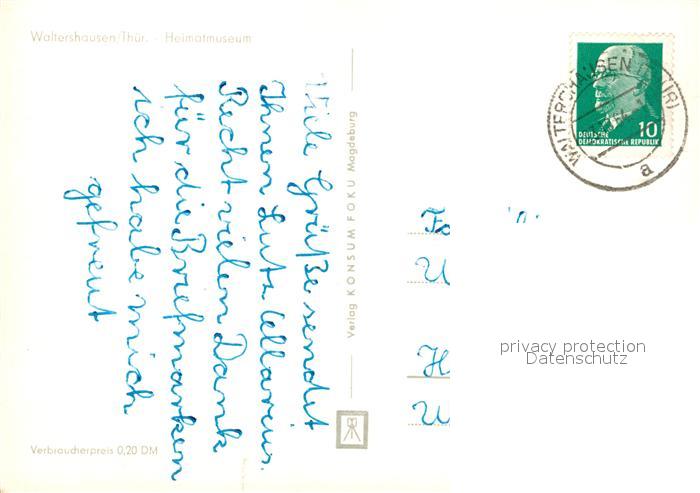 Waltershausen/Thür. - Heimatmuseum
Viele Grüße sendet
Ihnen Lutz
Recht vielen Dank
für die Briefmarken
ich habe mich
gefreut
Verbraucherpreis 0,20 DM
Verlag KONSUM FOKU Magdeburg
WALTERSHAUSEN (THÜR)
a
10
DEUTSCHE
DEMOKRATISCHE REPUBLIK
U
H
U
privacy protection
Datenschutz